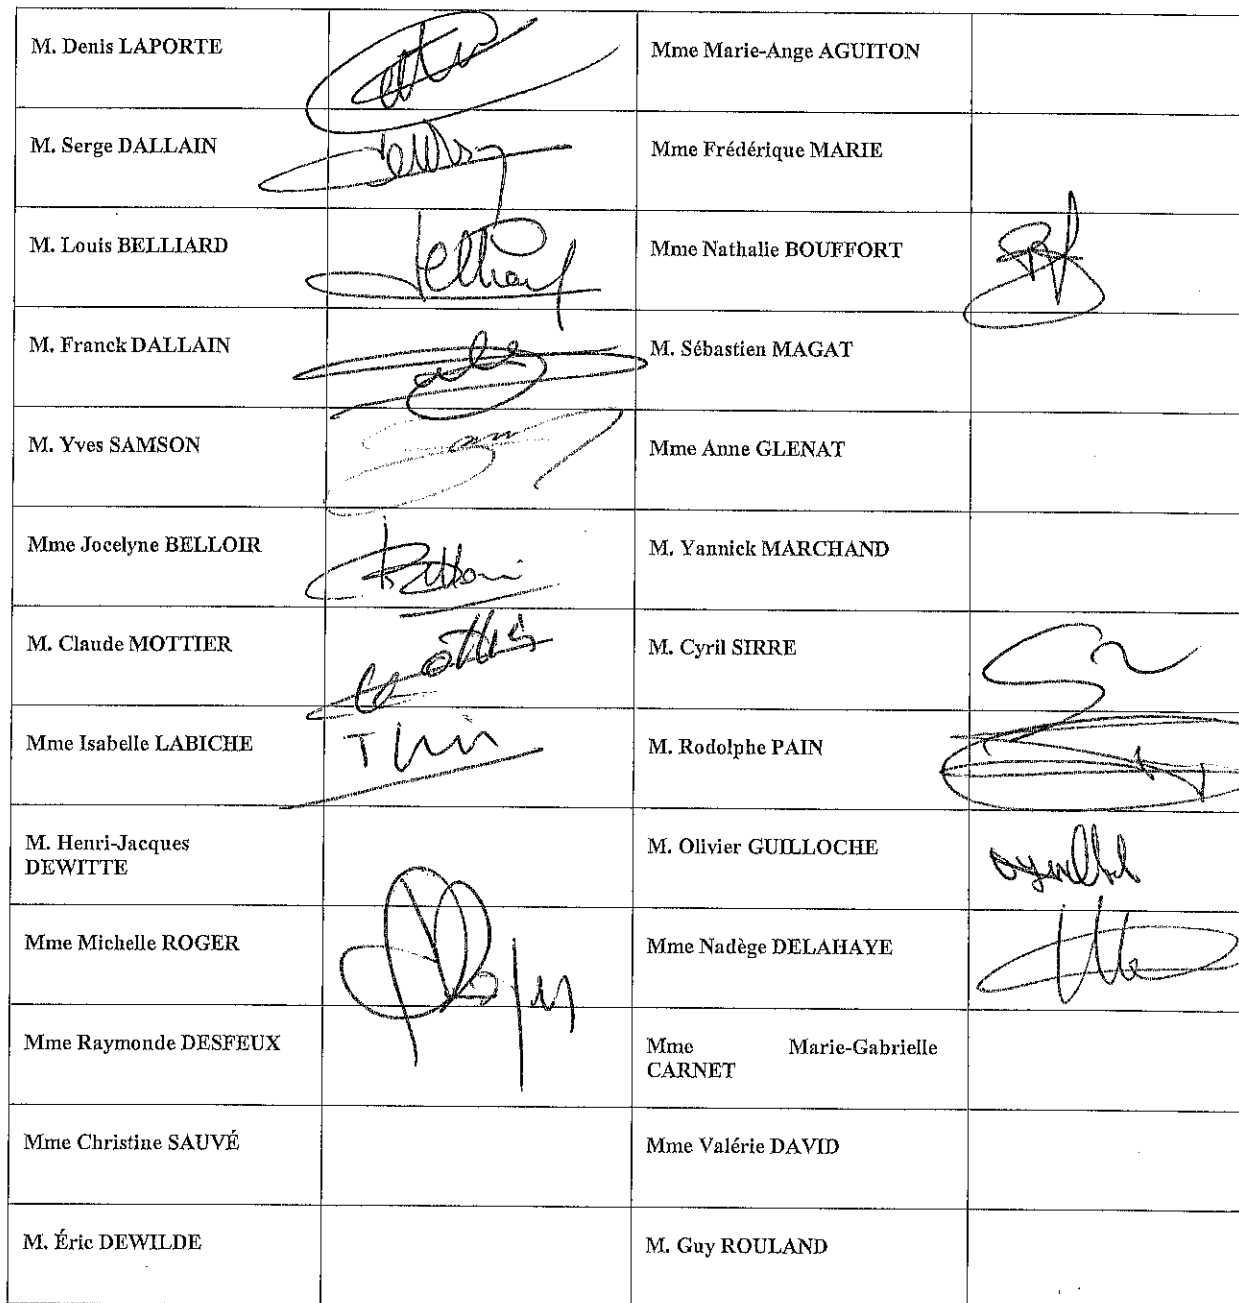 M. Denis LAPORTE
Mme Marie-Ange AGUITON
M. Serge DALLAIN
Mme Frédérique MARIE
M. Louis BELLIARD
Mme Nathalie BOUFFORT
M. Franck DALLAIN
M. Sébastien MAGAT
M. Yves SAMSON
Mme Anne GLENAT
Mme Jocelyne BELLOIR
M. Yannick MARCHAND
M. Claude MOTTIER
M. Cyril SIRRE
Mme Isabelle LABICHE
M. Rodolphe PAIN
M. Henri-Jacques
DEWITTE
M. Olivier GUILLOCHE
Mme Michelle ROGER
Mme Nadège DELAHAYE
Mme Raymonde DESFEUX
Mme Marie-Gabrielle
CARNET
Mme Christine SAUVÉ
Mme Valérie DAVID
M. Éric DEWILDE
M. Guy ROULAND